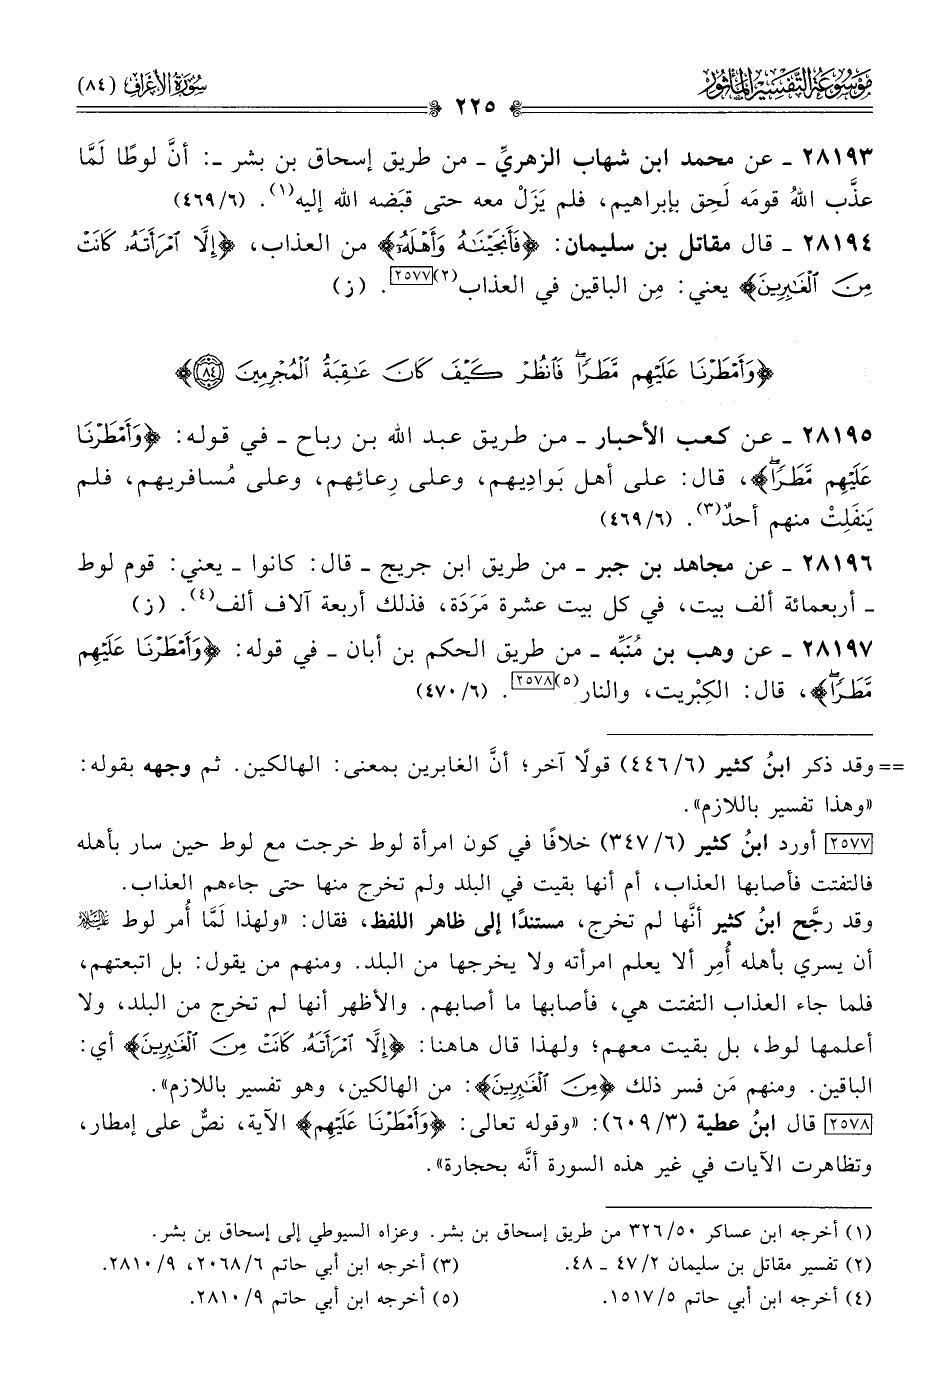 مَوْسُوعَة التَّفْسِير المَأثُور
سُورَة الأَعْرَاف (٨٤)
٢٢٥
٢٨١٩٣ ـ عن محمد ابن شهاب الزهريِّ ـ من طريق إسحاق بن بشر ـ: أنَّ لوطًا لَمَّا
عذَّب اللهُ قومَه لَحِق بإبراهيم، فلم يَزَلْ معه حتى قبَضه الله إليه(١). (٤٦٩/٦)
٢٨١٩٤ ـ قال مقاتل بن سليمان: ﴿فَأَنجَيْنَٰهُ وَأَهْلَهُۥٓ﴾ من العذاب، ﴿إِلَّا ٱمْرَأَتَهُۥ كَانَتْ
مِنَ ٱلْغَٰبِرِينَ﴾ يعني: مِن الباقين في العذاب(٢)[٢٥٧٧]. (ز)
﴿وَأَمْطَرْنَا عَلَيْهِم مَّطَرًاۖ فَٱنظُرْ كَيْفَ كَانَ عَٰقِبَةُ ٱلْمُجْرِمِينَ ٨٤﴾
٢٨١٩٥ ـ عن كعب الأحبار ـ من طريق عبد الله بن رباح ـ في قوله: ﴿وَأَمْطَرْنَا
عَلَيْهِم مَّطَرًاۖ﴾، قال: على أهل بَوادِيهم، وعلى رِعائِهم، وعلى مُسافريهم، فلم
يَنفَلِتْ منهم أحدٌ(٣). (٤٦٩/٦)
٢٨١٩٦ ـ عن مجاهد بن جبر ـ من طريق ابن جريج ـ قال: كانوا ـ يعني: قوم لوط
ـ أربعمائة ألف بيت، في كل بيت عشرة مَرَدَة، فذلك أربعة آلاف ألف(٤). (ز)
٢٨١٩٧ ـ عن وهب بن مُنَبِّه ـ من طريق الحكم بن أبان ـ في قوله: ﴿وَأَمْطَرْنَا عَلَيْهِم
مَّطَرًاۖ﴾، قال: الكِبْريت، والنار(٥)[٢٥٧٨]. (٤٧٠/٦)
== وقد ذكر ابنُ كثير (٤٤٦/٦) قولًا آخر؛ أنَّ الغابرين بمعنى: الهالكين. ثم وجهه بقوله:
«وهذا تفسير باللازم».
[٢٥٧٧] أورد ابنُ كثير (٣٤٧/٦) خلافًا في كون امرأة لوط خرجت مع لوط حين سار بأهله
فالتفتت فأصابها العذاب، أم أنها بقيت في البلد ولم تخرج منها حتى جاءهم العذاب.
وقد رجَّح ابنُ كثير أنَّها لم تخرج، مستندًا إلى ظاهر اللفظ، فقال: «ولهذا لَمَّا أُمر لوط عليه السلام
أن يسري بأهله أُمِر ألا يعلم امرأته ولا يخرجها من البلد. ومنهم من يقول: بل اتبعتهم،
فلما جاء العذاب التفتت هي، فأصابها ما أصابهم. والأظهر أنها لم تخرج من البلد، ولا
أعلمها لوط، بل بقيت معهم؛ ولهذا قال هاهنا: ﴿إِلَّا ٱمْرَأَتَهُۥ كَانَتْ مِنَ ٱلْغَٰبِرِينَ﴾ أي:
الباقين. ومنهم مَن فسر ذلك ﴿مِنَ ٱلْغَٰبِرِينَ﴾: من الهالكين، وهو تفسير باللازم».
[٢٥٧٨] قال ابنُ عطية (٦٠٩/٣): «وقوله تعالى: ﴿وَأَمْطَرْنَا عَلَيْهِم﴾ الآية، نصٌّ على إمطار،
وتظاهرت الآيات في غير هذه السورة أنَّه بحجارة».
(١) أخرجه ابن عساكر ٣٢٦/٥٠ من طريق إسحاق بن بشر. وعزاه السيوطي إلى إسحاق بن بشر.
(٢) تفسير مقاتل بن سليمان ٤٧/٢ ـ ٤٨. (٣) أخرجه ابن أبي حاتم ٢٠٦٨/٦، ٢٨١٠/٩.
(٤) أخرجه ابن أبي حاتم ١٥١٧/٥. (٥) أخرجه ابن أبي حاتم ٢٨١٠/٩.